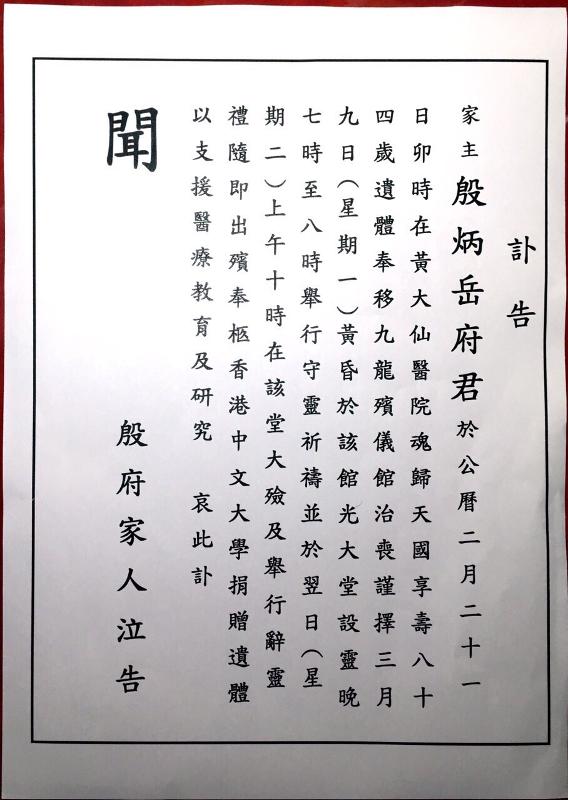 訃告
家主殷炳岳府君於公曆二月二十一
日卯時在黃大仙醫院魂歸天國享壽八十
四歲遺體奉移九龍殯儀館治喪謹擇三月
九日(星期一)黃昏於該館光大堂設靈晚
七時至八時舉行守靈祈禱並於翌日(星
期二)上午十時在該堂大殮及舉行辭靈
禮隨即出殯奉柩香港中文大學捐贈遺體
以支援醫療教育及研究 哀此訃
聞
殷府家人泣告